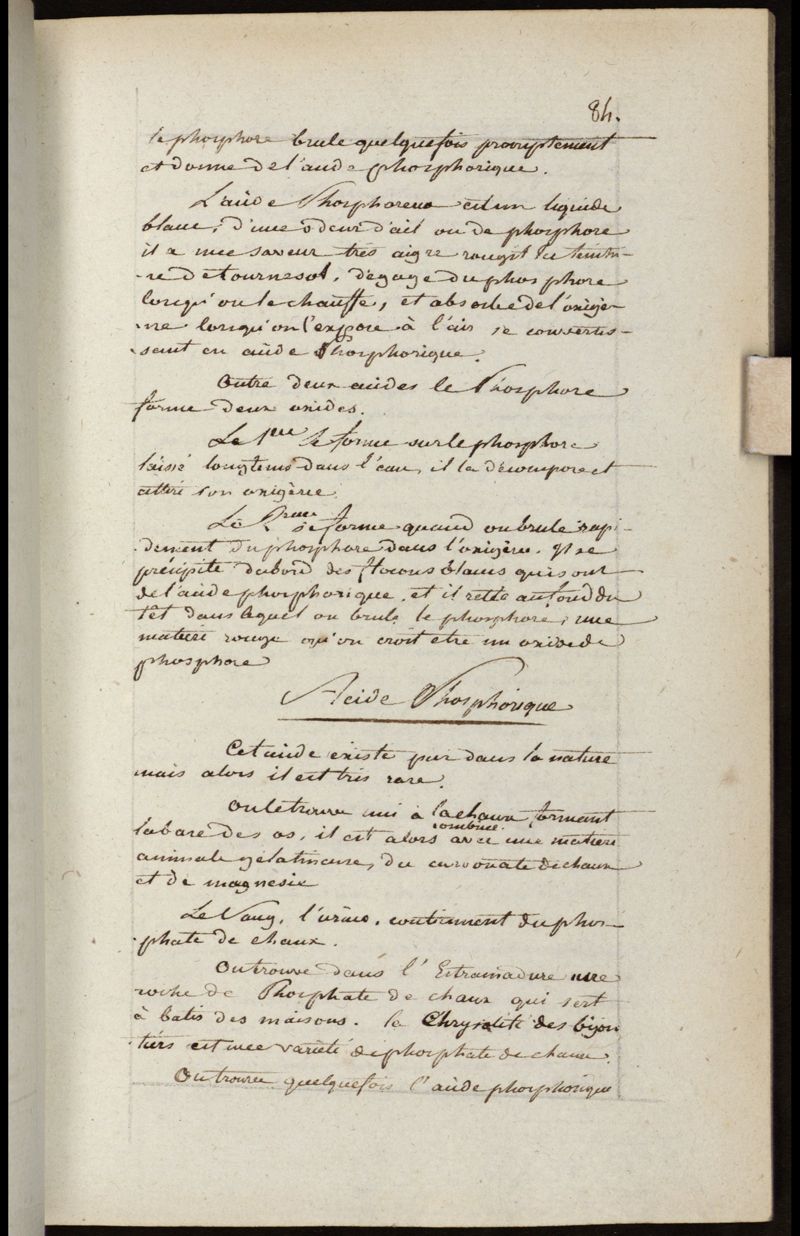 84.
le phosphore brule quelquefois promptement
et donne de l'acide phosphorique.
L'acide Phosphoreux est un liquide
blanc, d'une odeur d'ail ou de phosphore
il a une saveur très aigre rougit la teintu-
-re de tournesol, dégage du phosphore
lorsqu'on le chauffe, et absorbe de l'oxigè-
-ne lorsqu'on l'expose à l'air se convertis-
-sant en acide Phosphorique.
Outre deux acides le Phosphore
forme deux oxides.
Le 1er se forme sur le phosphore
laissé longtems dans l'eau, il la décompose et
attire son oxigène
Le 2me se forme quand on brule rapi-
-dement du phosphore dans l'oxigène. Il se
précipite dabord des flocons blancs qui sont
de l'acide phosphorique, et il reste au fond du
têt dans lequel on brule le phosphore, une
matière rouge qu'on croit etre un oxide de
phosphore
Acide Phosphorique
Cet acide existe pur dans la nature
mais alors il est très rare.
On le trouve uni à la chaux, formant
la base des os, il est alors combiné avec une matière
animale gélatineuse, du carbonate de chaux
et de magnésie
Le Sang, l'urine, contiennent du phos-
-phate de chaux.
On trouve dans l'Estramadure une
roche de Phosphate de chaux qui sert
à batir des maisons. la Chrysolite des bijou
-tiers est une variété de phosphate de chaux.
On trouve quelquefois l'acide phosphorique